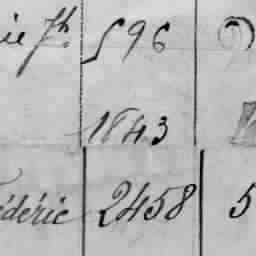 ie Jh. 596
1843
édéric 2458 5